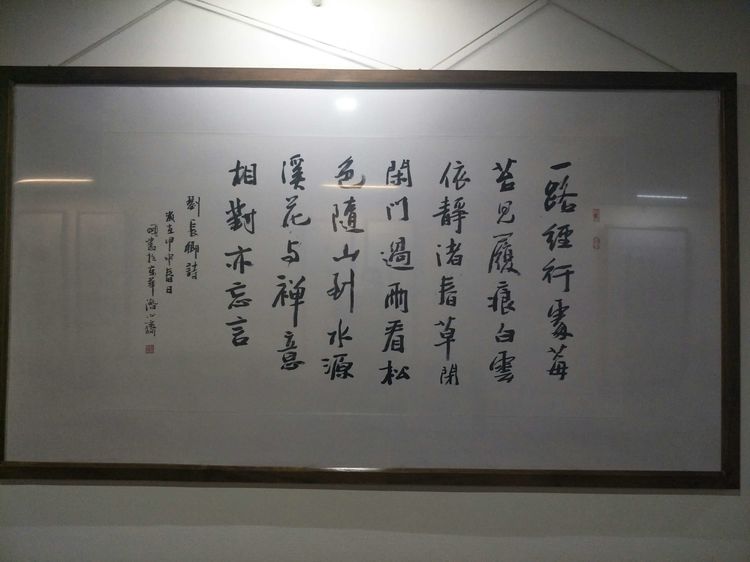 一路經行處莓
苔見履痕白雲
依靜渚春草閉
閑門過雨看松
色隨山到水源
溪花与禅意
相對亦忘言
劉長卿詩
歲在甲申春日
國書於京華潛心齋